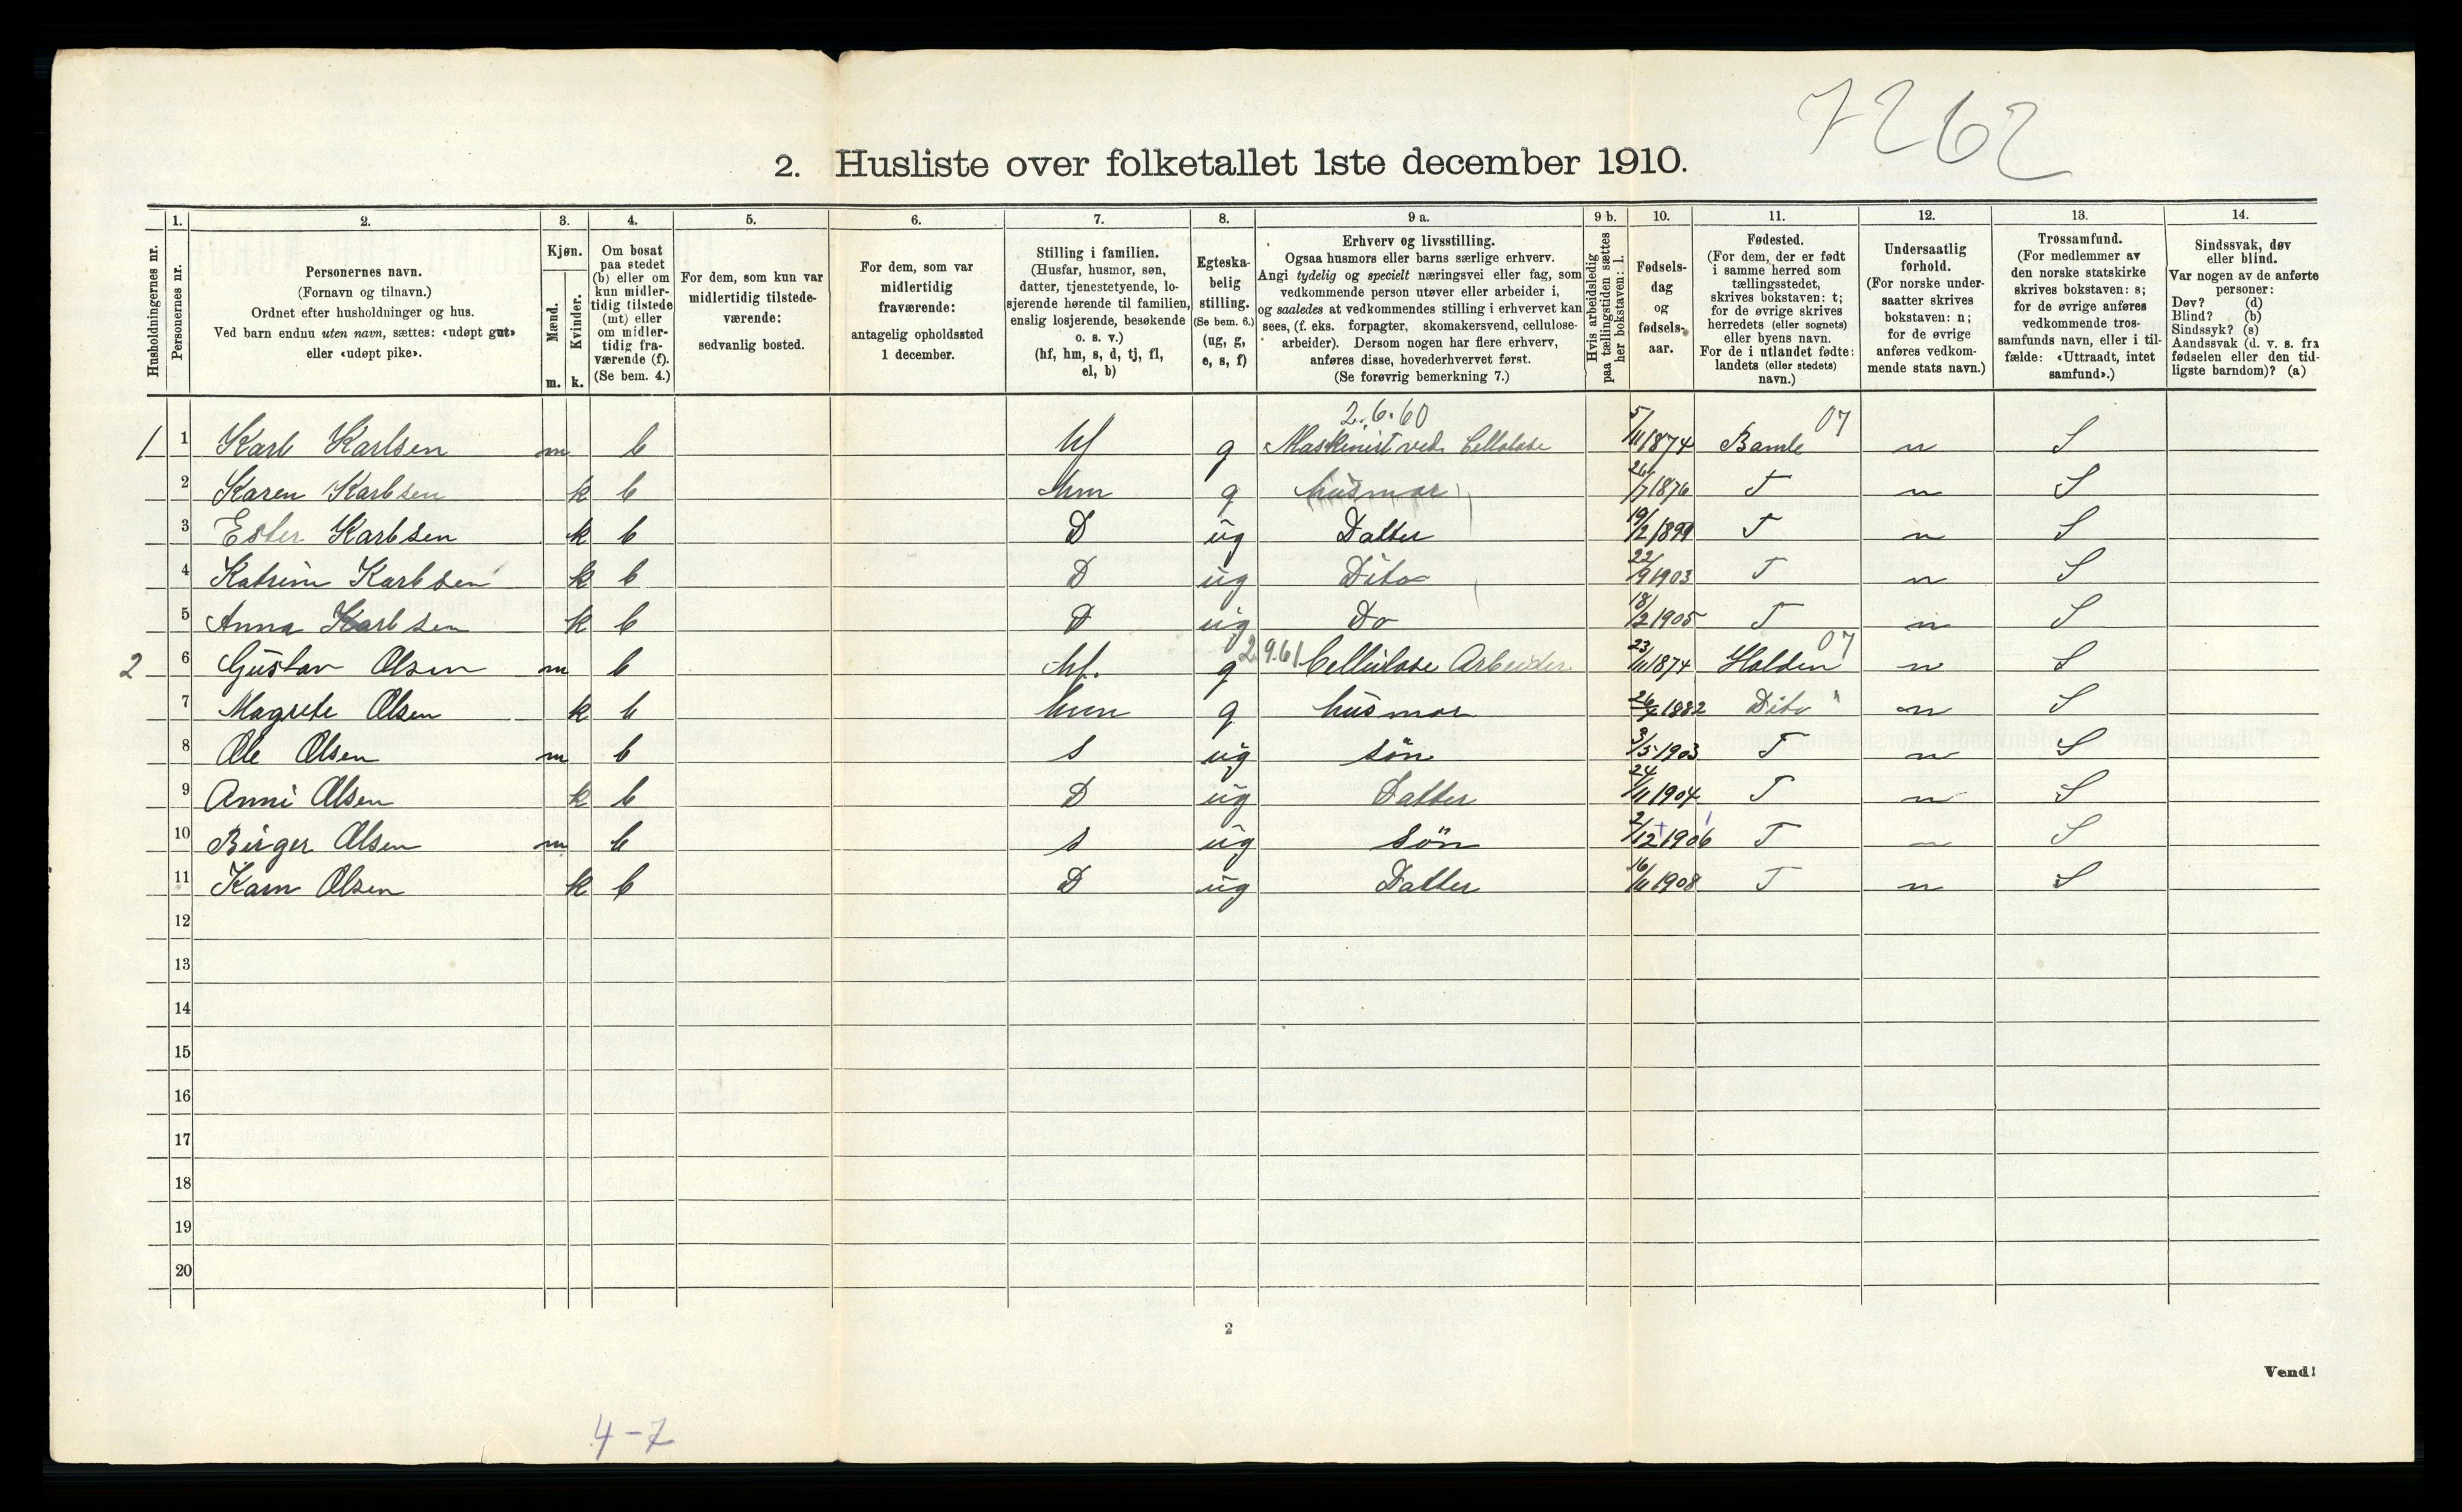 7262
2. Husliste over folketallet 1ste december 1910.
Husholdningernes nr.
1. Personernes nr.
2. Personernes navn. (Fornavn og tilnavn.) Ordnet efter husholdninger og hus. Ved barn endnu uten navn, sættes: «udøpt gut» eller «udøpt pike».
3. Kjøn. Mænd. m. Kvinder. k.
4. Om bosat paa stedet (b) eller om kun midlertidig tilstede (mt) eller om midlertidig fraværende (f). (Se bem. 4.)
5. For dem, som kun var midlertidig tilstedeværende: sedvanlig bosted.
6. For dem, som var midlertidig fraværende: antagelig opholdssted 1 december.
7. Stilling i familien. (Husfar, husmor, søn, datter, tjenestetyende, losjerende hørende til familien, enslig losjerende, besøkende o. s. v.) (hf, hm, s, d, tj, fl, el, b)
8. Egteskabelig stilling. (Se bem. 6.) (ug, g, e, s, f)
9 a. Erhverv og livsstilling. Ogsaa husmors eller barns særlige erhverv. Angi tydelig og specielt næringsvei eller fag, som vedkommende person utøver eller arbeider i, og saaledes at vedkommendes stilling i erhvervet kan sees, (f. eks. forpagter, skomakersvend, cellulose-arbeider). Dersom nogen har flere erhverv, anføres disse, hovederhvervet først. (Se forøvrig bemerkning 7.)
9 b. Hvis arbeidsledig paa tællingstiden sættes her bokstaven: l.
10. Fødselsdag og fødselsaar.
11. Fødested. (For dem, der er født i samme herred som tællingsstedet, skrives bokstaven: t; for de øvrige skrives herredets (eller sognets) eller byens navn. For de i utlandet fødte: landets (eller stedets) navn.)
12. Undersaatlig forhold. (For norske undersaatter skrives bokstaven: n; for de øvrige anføres vedkommende stats navn.)
13. Trossamfund. (For medlemmer av den norske statskirke skrives bokstaven: s; for de øvrige anføres vedkommende trossamfunds navn, eller i tilfælde: «Uttraadt, intet samfund».)
14. Sindssvak, døv eller blind. Var nogen av de anførte personer: Døv? (d) Blind? (b) Sindssyk? (s) Aandssvak (d. v. s. fra fødselen eller den tidligste barndom)? (a)
2.6.60 07
1 1 Karl Karlsen m b hf g Maskinist ved Cellulose 5/11 1874 Bamle n S
2 Karen Karlsen k b hm g husmor 26/7 1876 T n S
3 Ester Karlsen k b D ug Datter 19/2 1899 T n S
4 Katrine Karlsen k b D ug Dito 22/9 1903 T n S
5 Anna Karlsen k b D ug Do 18/2 1905 T n S
2 6 Gustav Olsen m b hf. g 2.9.61 Cellulose Arbeider 23/11 1874 Holden 07 n S
7 Magrete Olsen k b hm g husmor 26/4 1882 Dito " n S
8 Ole Olsen m b s ug søn 3/5 1903 T n S
9 Anni Olsen k b D ug Datter 24/11 1904 T n S
10 Birger Olsen m b s ug Søn 2/12 1906 T n S
11 Karn Olsen k b D ug Datter 16/11 1908 T n S
12
13
14
15
16
17
18
19
20
2
Vend!
4-7